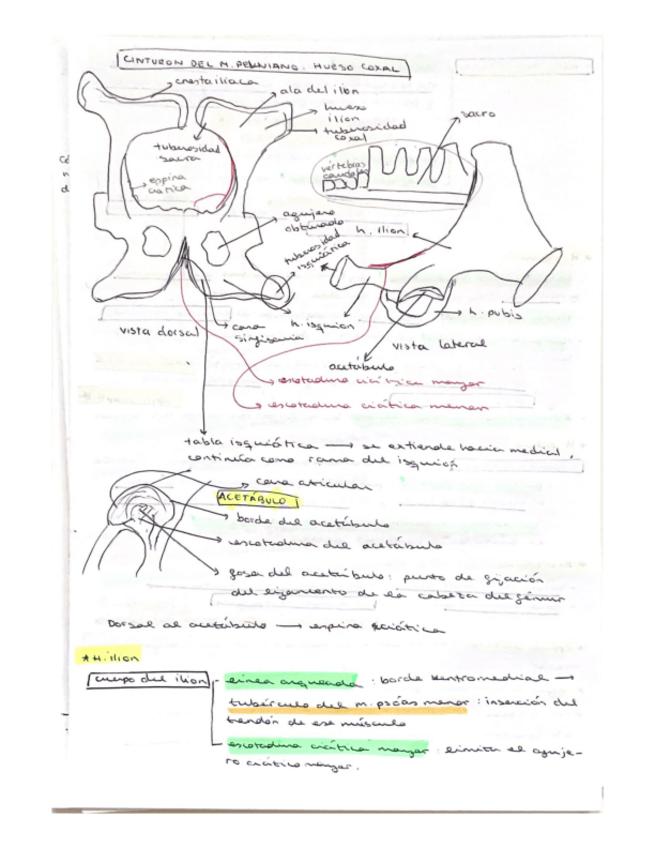 CINTURON DEL M. PELVIANO. HUESO COXAL
cresta iliaca
ala del ilion
hueso
ilion
tuberosidad
coxal
sacro
tuberosidad
sacra
espina
ciatica
vertebras
caudales
agujero
obturado
h. ilion
tuberosidad
isquiática
vista dorsal
cara
h. isquion
h. pubis
vista lateral
acetábulo
escotadura ciática mayor
escotadura ciática menor
tabla isquiática → se extiende hacia medial,
continúa como rama del isquion
cara articular
ACETÁBULO
borde del acetábulo
escotadura del acetábulo
fosa del acetábulo: punto de fijación
del ligamento de la cabeza del fémur
Dorsal al acetábulo → espina ciática
* H. illion
cuerpo del ilion
linea arqueada : borde ventromedial →
tubérculo del m. psoas menor : inserción del
tendón de ese músculo
escotadura ciática mayor : limita el aguje-
ro ciático mayor.